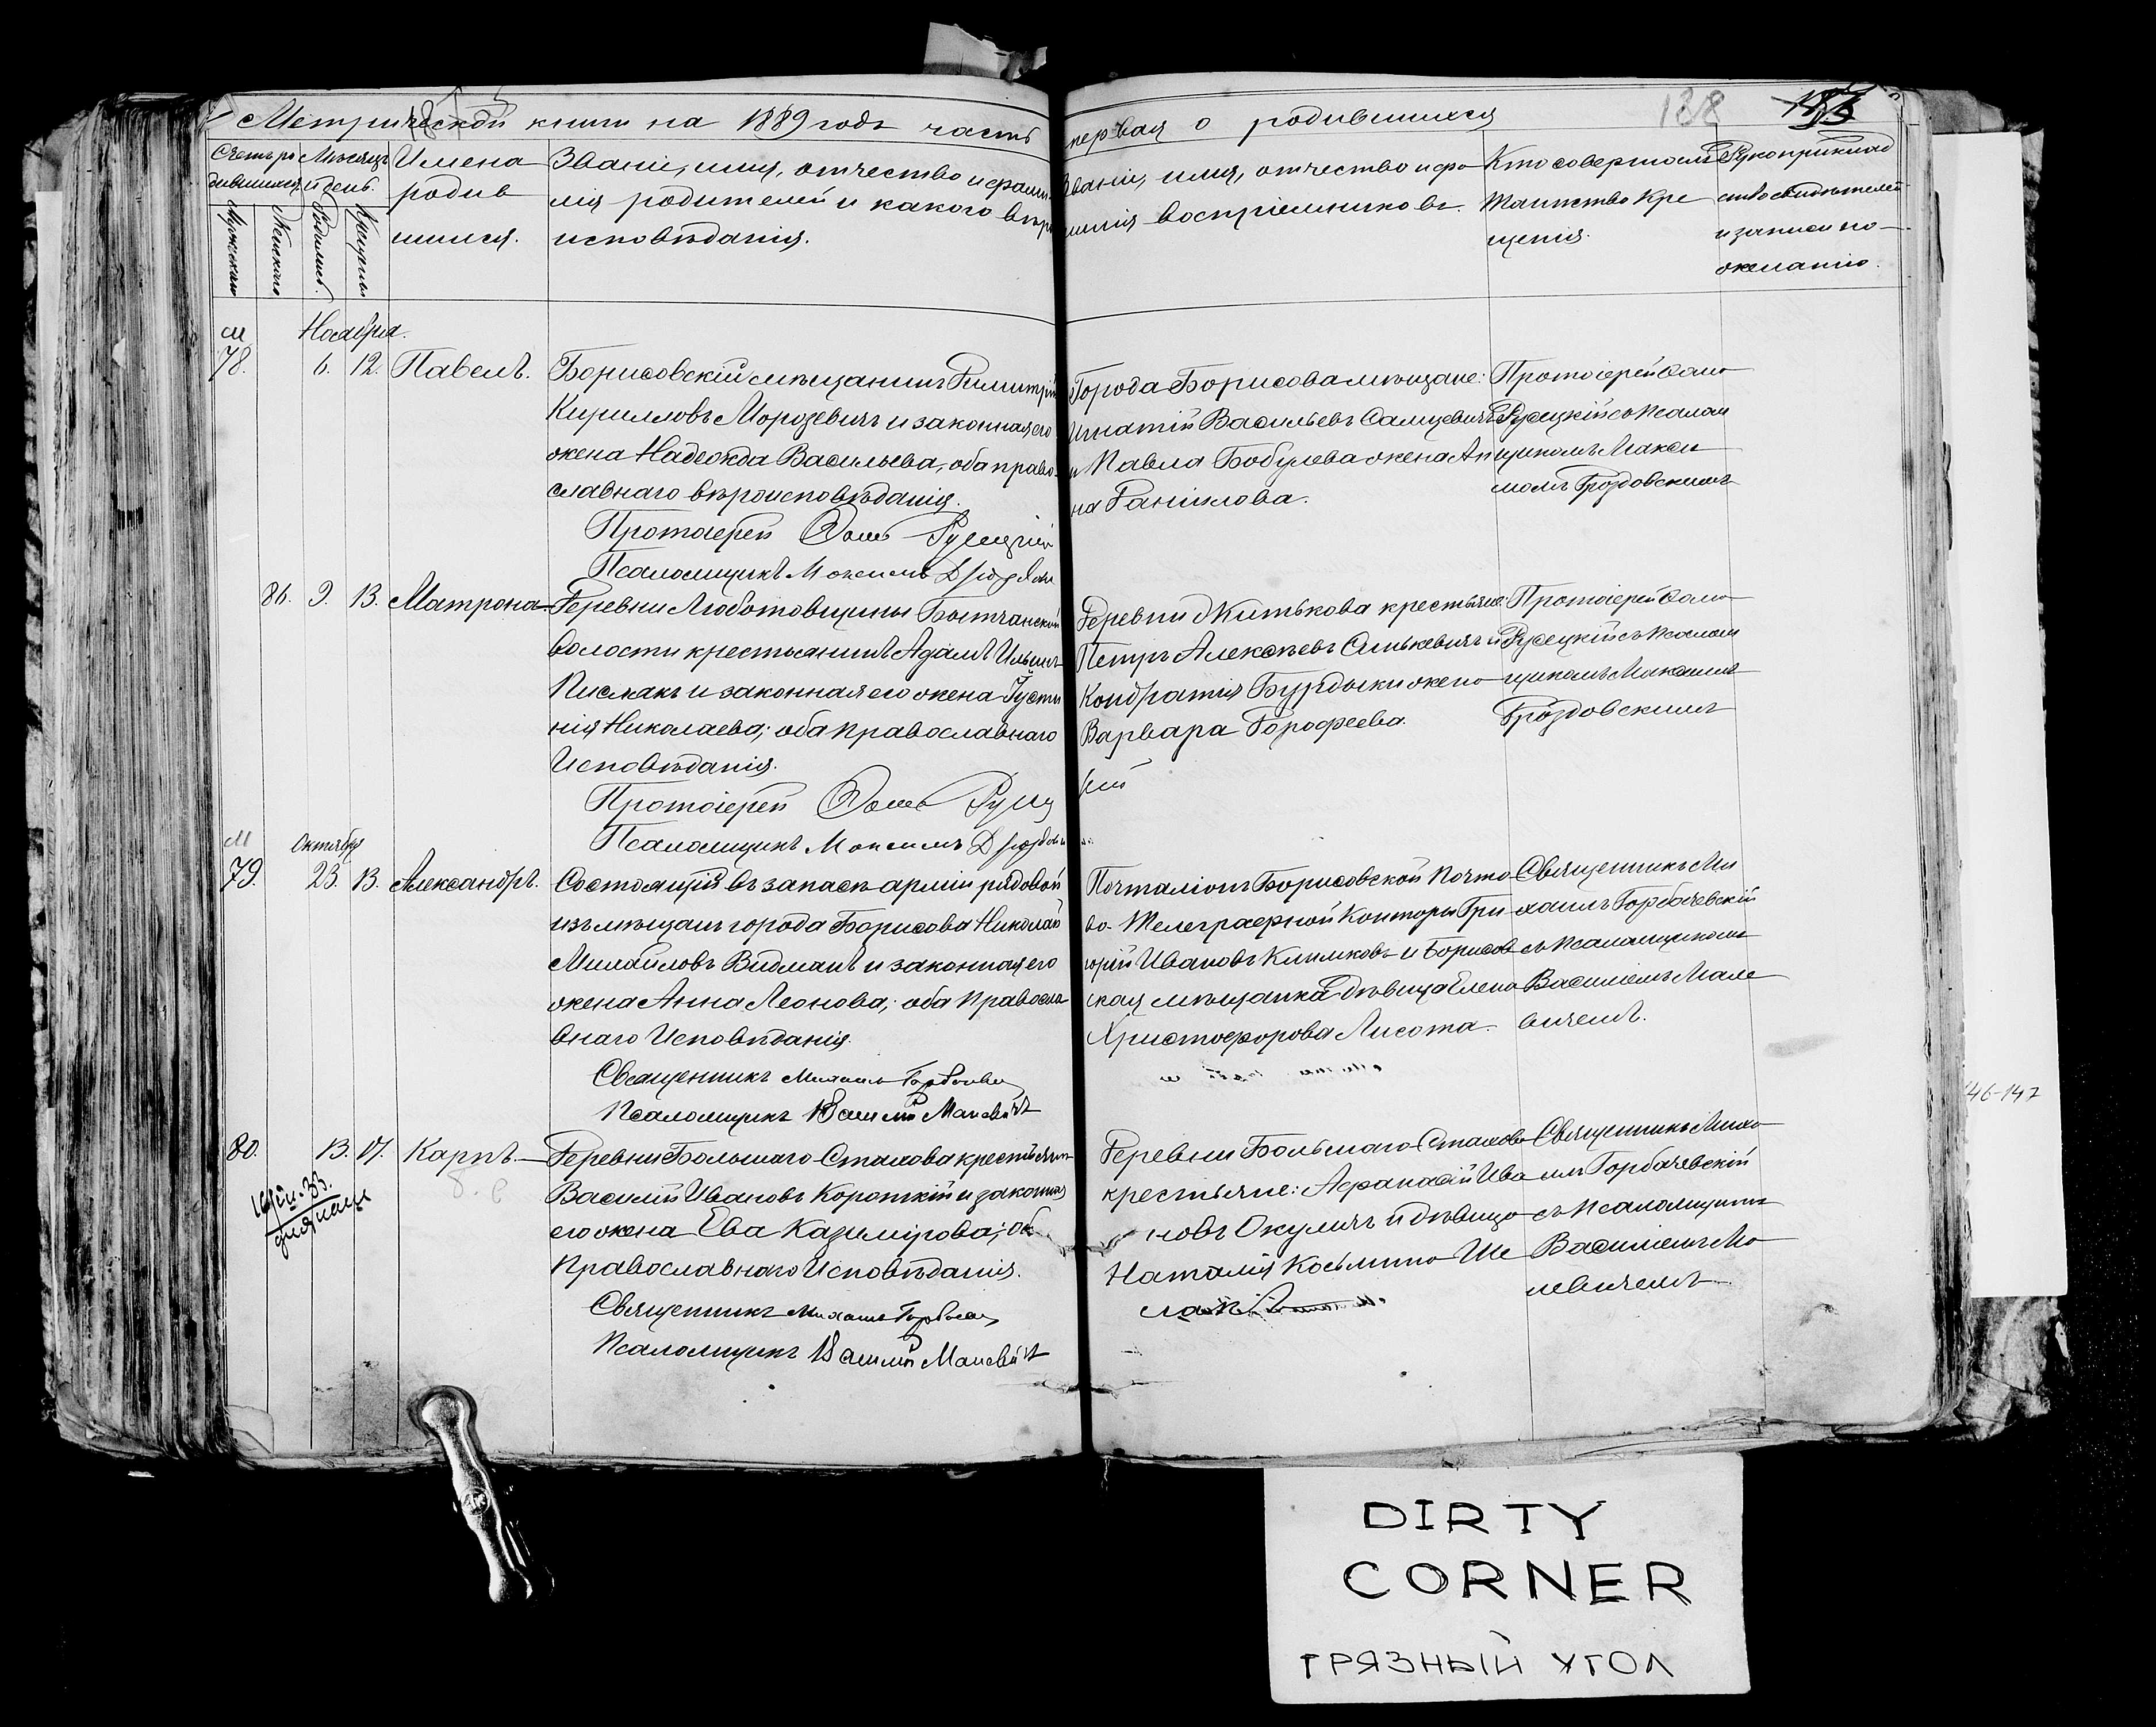 Метрической книги на 1889 годъ часть первая о родившихся
138
Счетъ ро
дившихся.
Мѣсяцъ
и день.
Мужескаго
Женскаго
Родились.
Крещены
Имена
родив
шихся.
Званіе, имя, отчество и фами
лія родителей и какого вѣро
исповѣданія.
Званіе, имя, отчество и фа
милія воспріемниковъ.
Кто совершалъ
таинство Кре
щенія.
Рукоприклад
ство свидѣтелей
и записи по
желанію.
М
Ноября.
78.
6.
12.
Павелъ.
Борисовскій мѣщанинъ Димитрій
Кирилловъ Морозевичъ и законная его
жена Надежда Васильева, оба право
славнаго вѣроисповѣданія.
Протоіерей Рущецкій
Псаломщикъ Максимъ
Города Борисова мѣщане:
Игнатій Васильевъ Салцевичъ
и Павла Бобулева жена Ан
на Данилова.
Протоіерей
съ псалом
щикомъ Макси
момъ Дроздовскимъ
86.
9.
13.
Матрона
Деревни Люботовщины
волости крестьянинъ Адамъ Ильинъ
Письмакъ и законная его жена Густи
нія Николаева; оба православнаго
Исповѣданія.
Протоіерей
Псаломщикъ Максимъ
Деревни Житькова крестьяне:
Петръ Алексѣевъ Синькевичъ и
Кондратія Бурдыки жена
Варвара Дорофеева.
кій
Протоіерей
съ псалом
щикомъ Максимъ
Дроздовскимъ
М
Октября
79.
23.
13.
Александръ.
Состоящій въ запасѣ арміи рядовой
изъ мѣщанъ города Борисова Николай
Михайловъ Видманъ и законная его
жена Анна Леонова; оба Правосла
внаго Исповѣданія.
Священникъ Михаилъ
Псаломщикъ Василій
Почталіонъ Борисовской Почто
во-Телеграфной Конторы Гри
горій Ивановъ Климковъ и Борисов
ская мѣщанка дѣвица Елена
Христофорова Лисота.
Священникъ Ми
хаилъ Горбачевскій
съ псаломщикомъ
Василіемъ Мале
вичемъ.
80.
13.
17.
Карпъ.
Деревни Большаго Стахова крестьянинъ
Василій Ивановъ Короткій и законная
его жена Ева Казимірова; об
Православнаго Исповѣданія.
Священникъ Михаилъ
Псаломщикъ Василій
Деревни Большаго Стахова
крестьяне: Афанасій Ива
новъ Окуличъ и дѣвица
Наталія Косьмина Ше
лак
Священникъ Миха
илъ Горбачевскій
съ псаломщикомъ
Василіемъ Ма
левичемъ
146-147
DIRTY
CORNER
ГРЯЗНЫЙ УГОЛ